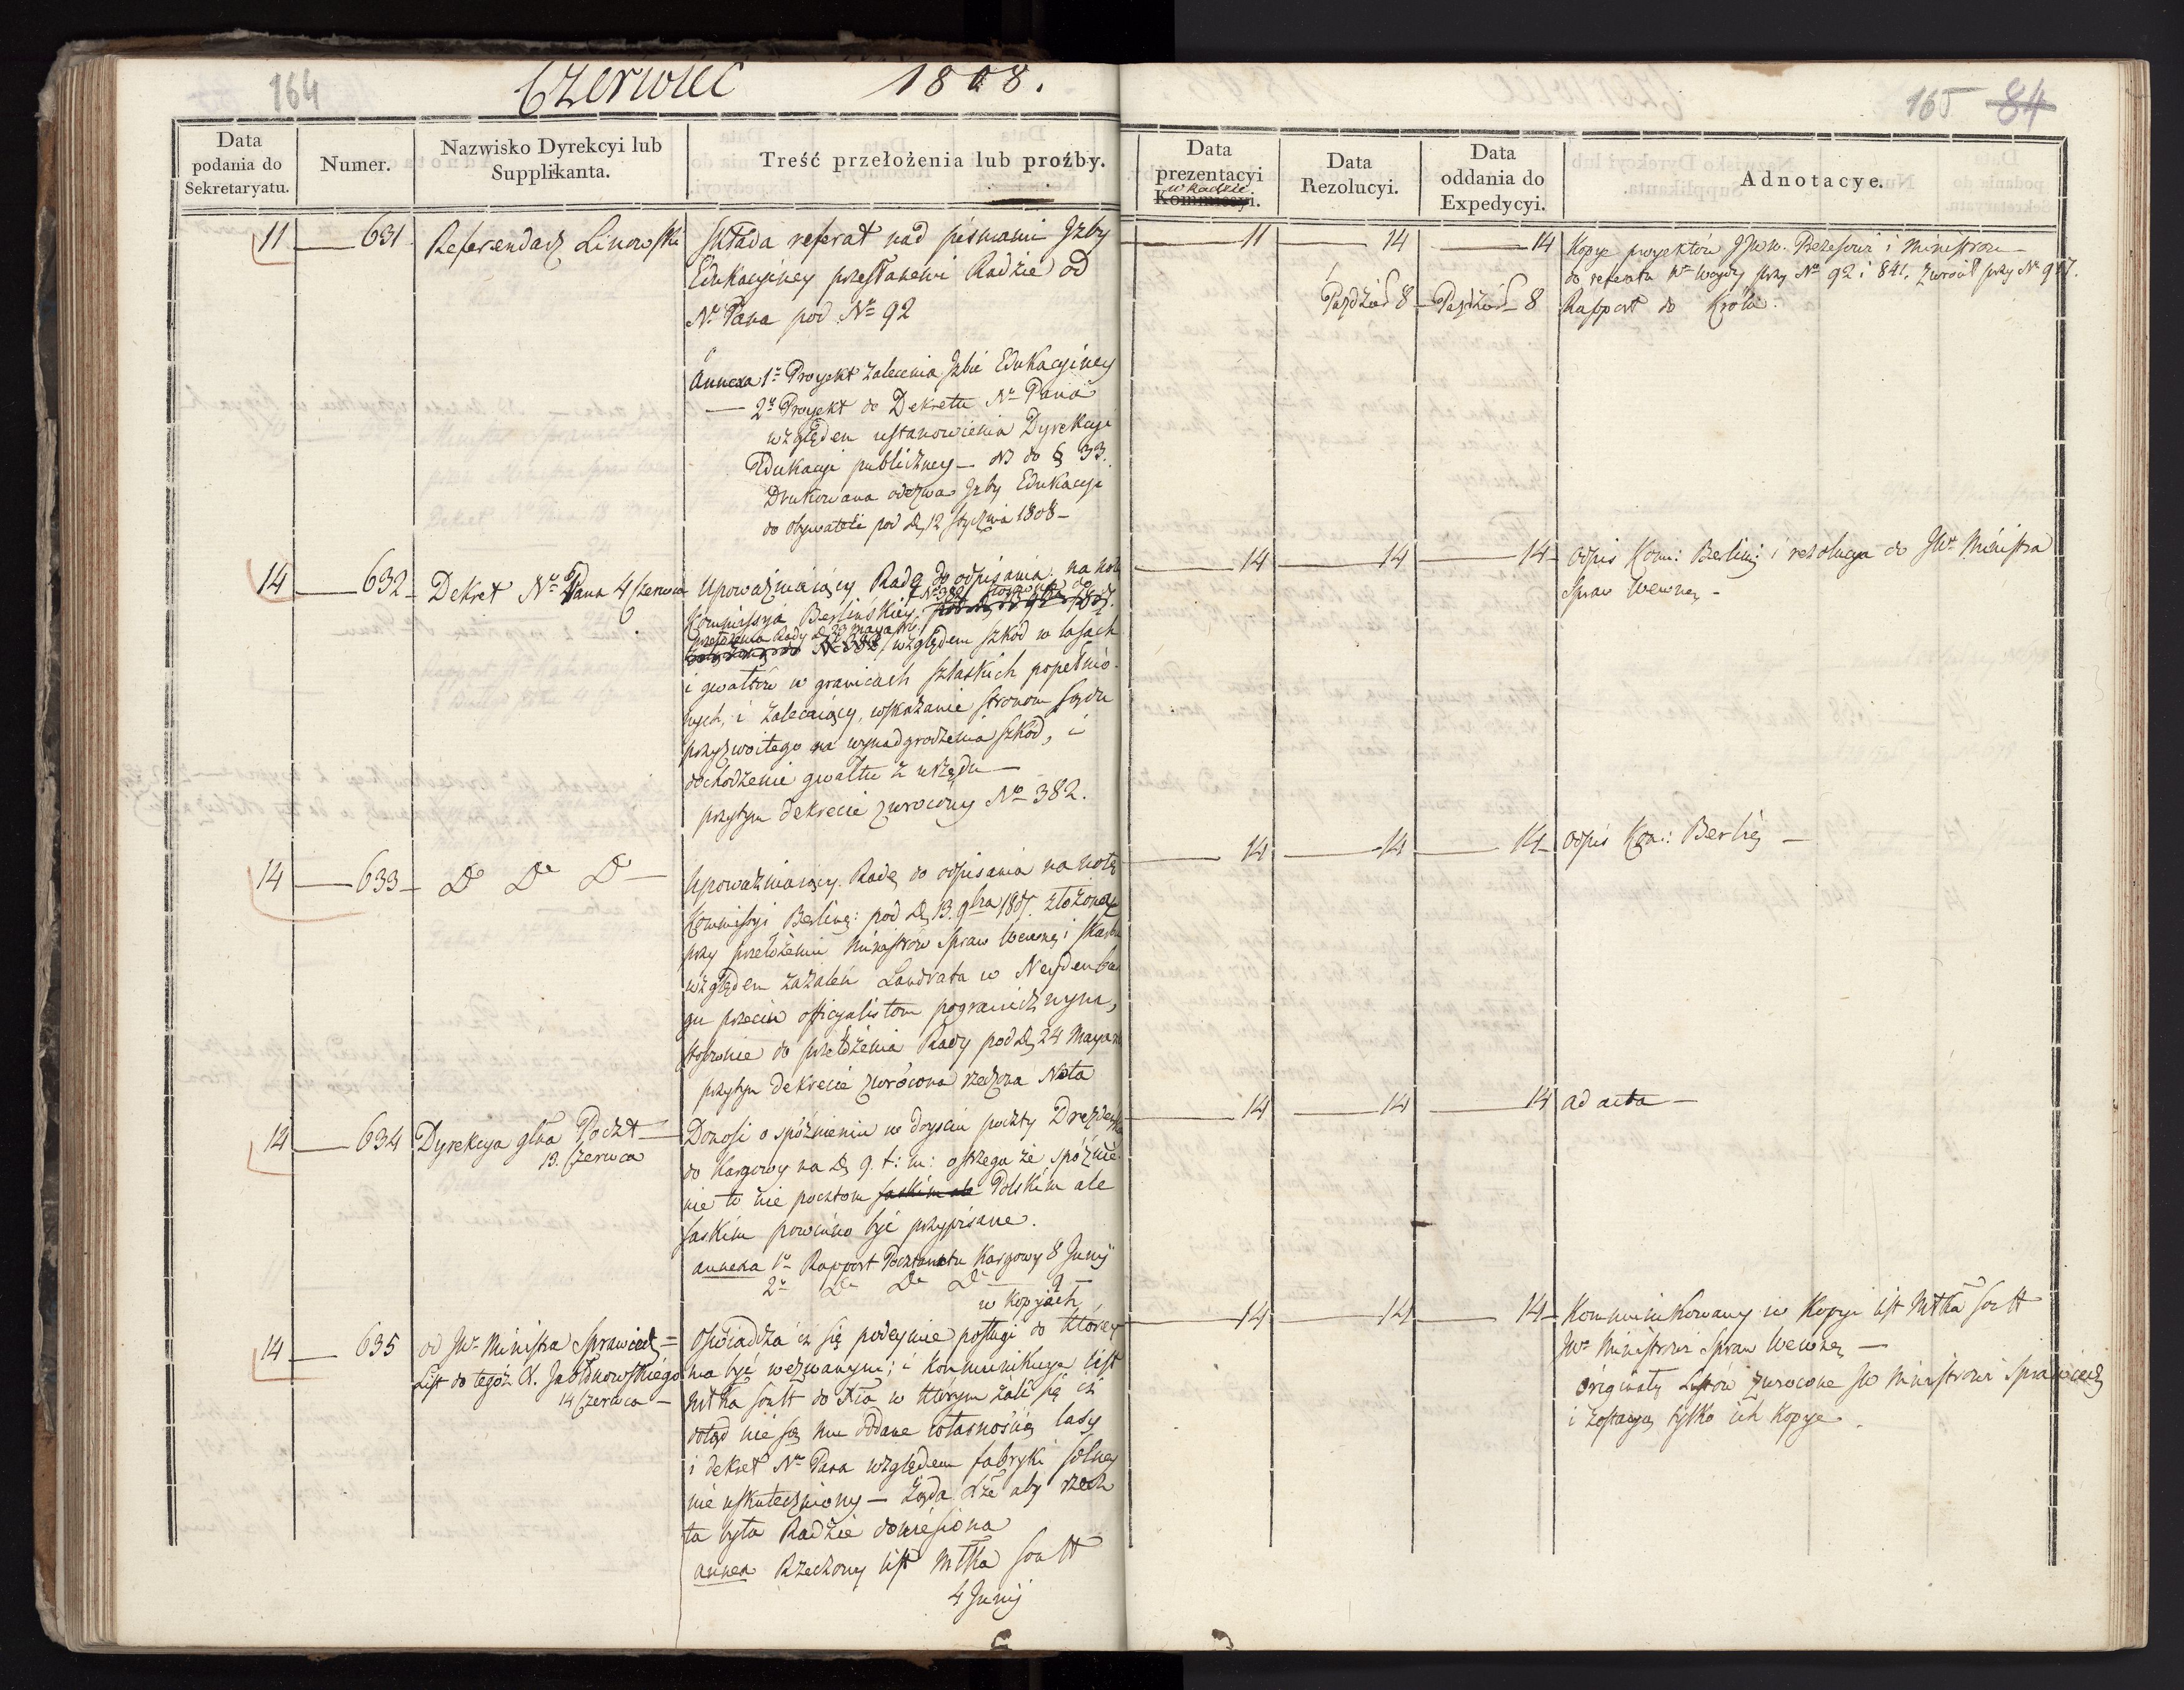 164 Czerwiec 1808.
165 84
Data podania do Sekretaryatu.
Numer.
Nazwisko Dyrekcyi lub Supplikanta.
Treść przełożenia lub proźby.
Data prezentacyi w Radzie Kommissyi.
Data Rezolucyi.
Data oddania do Expedycyi.
Adnotacye.
11 — 631. Referendarz Linowski
Składa referat nad pismami Izby
Edukacyiney przesłanemi Radzie od
Nº Pana pod Nº 92
Annexa 1º Proyekt zalecenia Izbie Edukacyiney
— 2º Proyekt do Dekretu Nº Pana
względem ustanowienia Dyrekcyi
Edukacyi publiczney — NB do § 33.
Drukowana odezwa Izby Edukacyi
do obywateli pod D. 12 stycznia 1808 —
— 11 — 14 — 14
Paździer 8 — Paździer 8
Kopye proyektów JWW. Prezesowi i Ministrom
do referatu Wº przy Nº 92 i 841. zwrócił przy Nº 917.
Rapport do Króla.
14 — 632 — Dekret Nº Pana 4 Czerwca
Upoważniaiący Radę do odpisania na notę
Kommissyi Berlińskiey Nº 382 stosownie do
przełożenia Rady D. 23 maja względem szkód w lasach
i gwałtów w granicach szląskich popełnio-
nych, i zalecaiący, wskazanie stronom sądu
przyzwoitego na wynadgrodzenia szkód, i
dochodzenie gwałtu z urzędu —
przytym dekrecie zwrócony Nº 382.
— 14 — 14 — 14 —
odpis Kom: Berliń: i rezolucya do JWº Ministra
Spraw Wewnę. —
14 — 633 — Dº Dº Dº —
Upoważniaiący Radę do odpisania na notę
Kommissyi Berliną: pod D. 13. 9bra 1807. złożoną
przy przełożeniu Ministrów Spraw Wewnę i Skarbu
względem zażaleń Landrata w Neydenbur
gu przeciw officyalistom pogranicznym,
stosownie do przełożenia Rady pod D. 24 Maya
przytym dekrecie zwrócona rzeczona Nota
— 14 — 14 — 14 —
odpis Kom: Berliń —
14 — 634 Dyrekcya głna Poczt —
13. Czerwca
Donosi o spóźnieniu w doyściu poczty Drezdeńs
do Kargowy na D. 9. t: m: ostrzega że spóźnie
nie to nie pocztom saskim ale Polskim ale
saskim powinno być przypisane.
annexa 1º Rapport Pocztamtu Kargowy 8 Junij
2º Dº Dº Dº — 9 —
w kopyiach
— 14 — 14 — 14
ad acta —
14 — 635 od JWº Ministra Sprawied —
List do tegoż X. Jabłonowskiego
14 Czerwca —
Oświadcza iż się podeymie posługi do którey
ma być wezwanym; i kommunikuye list
Młka Soult do Xcia w którym żali się iż
dotąd nie są mu oddane własnością lasy
i dekret Nº Pana względem fabryki solney
nie uskuteczniony — żąda aby rzecz
ta była Radzie doniesiona
annex Rzeczony list Młka Soult
4 Junij
— 14 — 14 — 14 —
Kommunikowany w Kopyi list Młka Soult
JWº Ministrowi Spraw Wewnę —
originały Listów zwrócone JW Ministrowi Sprawiedl
i zostaią tylko ich kopye.